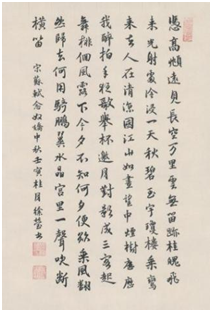 憑高眺遠見長空万里雲無留跡桂魄飛
來光射處冷浸一天秋碧玉宇瓊樓乘鸞
來去人在清涼國江山如畫望中煙樹歷歷
我醉拍手狂歌舉杯邀月對影成三客起
舞徘徊風露下今夕不知何夕便欲乘風翻
然歸去何用騎鵬翼水晶宮裏一聲吹斷
橫笛 宋蘇軾念奴嬌中秋壬寅桂月徐書